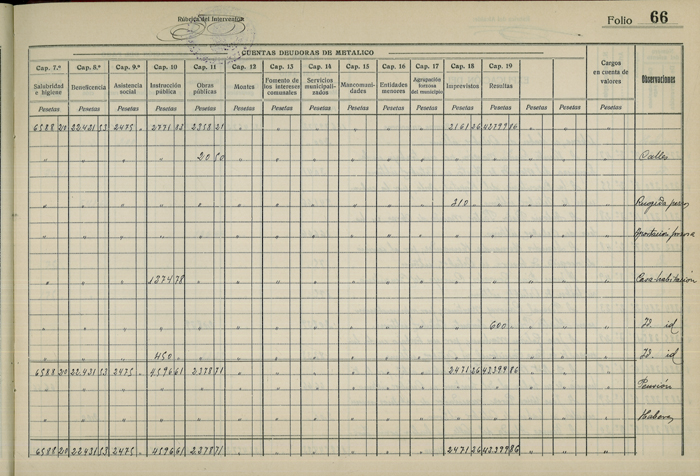 Rúbrica del Interventor
Folio 66
CUENTAS DEUDORAS DE METALICO
Cap. 7.º Cap. 8.º Cap. 9.º Cap. 10 Cap. 11 Cap. 12 Cap. 13 Cap. 14 Cap. 15 Cap. 16 Cap. 17 Cap. 18 Cap. 19
Salubridad e higiene Beneficencia Asistencia social Instrucción pública Obras públicas Montes Fomento de los intereses comunales Servicios municipalizados Mancomunidades Entidades menores Agrupación forzosa del municipio Imprevistos Resultas Cargos en cuenta de valores Observaciones
Pesetas Pesetas Pesetas Pesetas Pesetas Pesetas Pesetas Pesetas Pesetas Pesetas Pesetas Pesetas Pesetas Pesetas Pesetas Pesetas
6588 20 22.431 53 2475 " 2771 83 2358 21 " " " " " " 2161 26 42799 86 " " "
" " " " 20 50 " " " " " " " " " " " Calles
" " " " " " " " " " " 310 " " " " "
" " " " " " " " " " " " " " " "
" " " 1374 78 " " " " " " " " " " " " Casa-habitación
" " " " " " " " " " " " 600 " " " " id
" " " 450 " " " " " " " " " " " " " id
6588 20 22.431 53 2475 " 4596 61 2378 71 " " " " " " 2471 26 43399 86 " " "
" " " " " " " " " " " " " " " " Pensión
" " " " " " " " " " " " " " " " Haberes
6588 20 22431 53 2475 " 4596 61 2378 71 " " " " " " 2471 26 43399 86 " " "